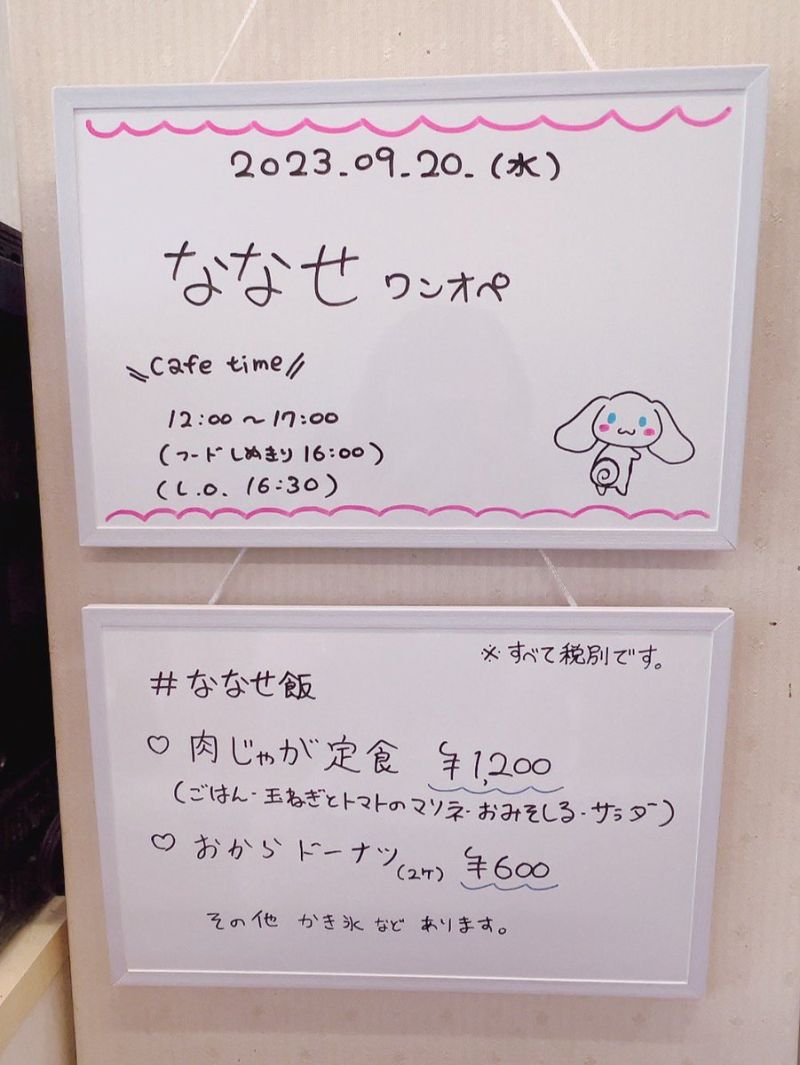 2023.09.20.(水)
ななせ ワンオペ
\\Cafe time//
12:00〜17:00
(フードしめきり 16:00)
(L.O. 16:30)
※すべて税別です。
#ななせ飯
♡ 肉じゃが定食 ¥1,200
(ごはん・玉ねぎとトマトのマリネ・おみそしる・サラダ)
♡ おからドーナツ(2ケ) ¥600
その他 かき氷 など あります。